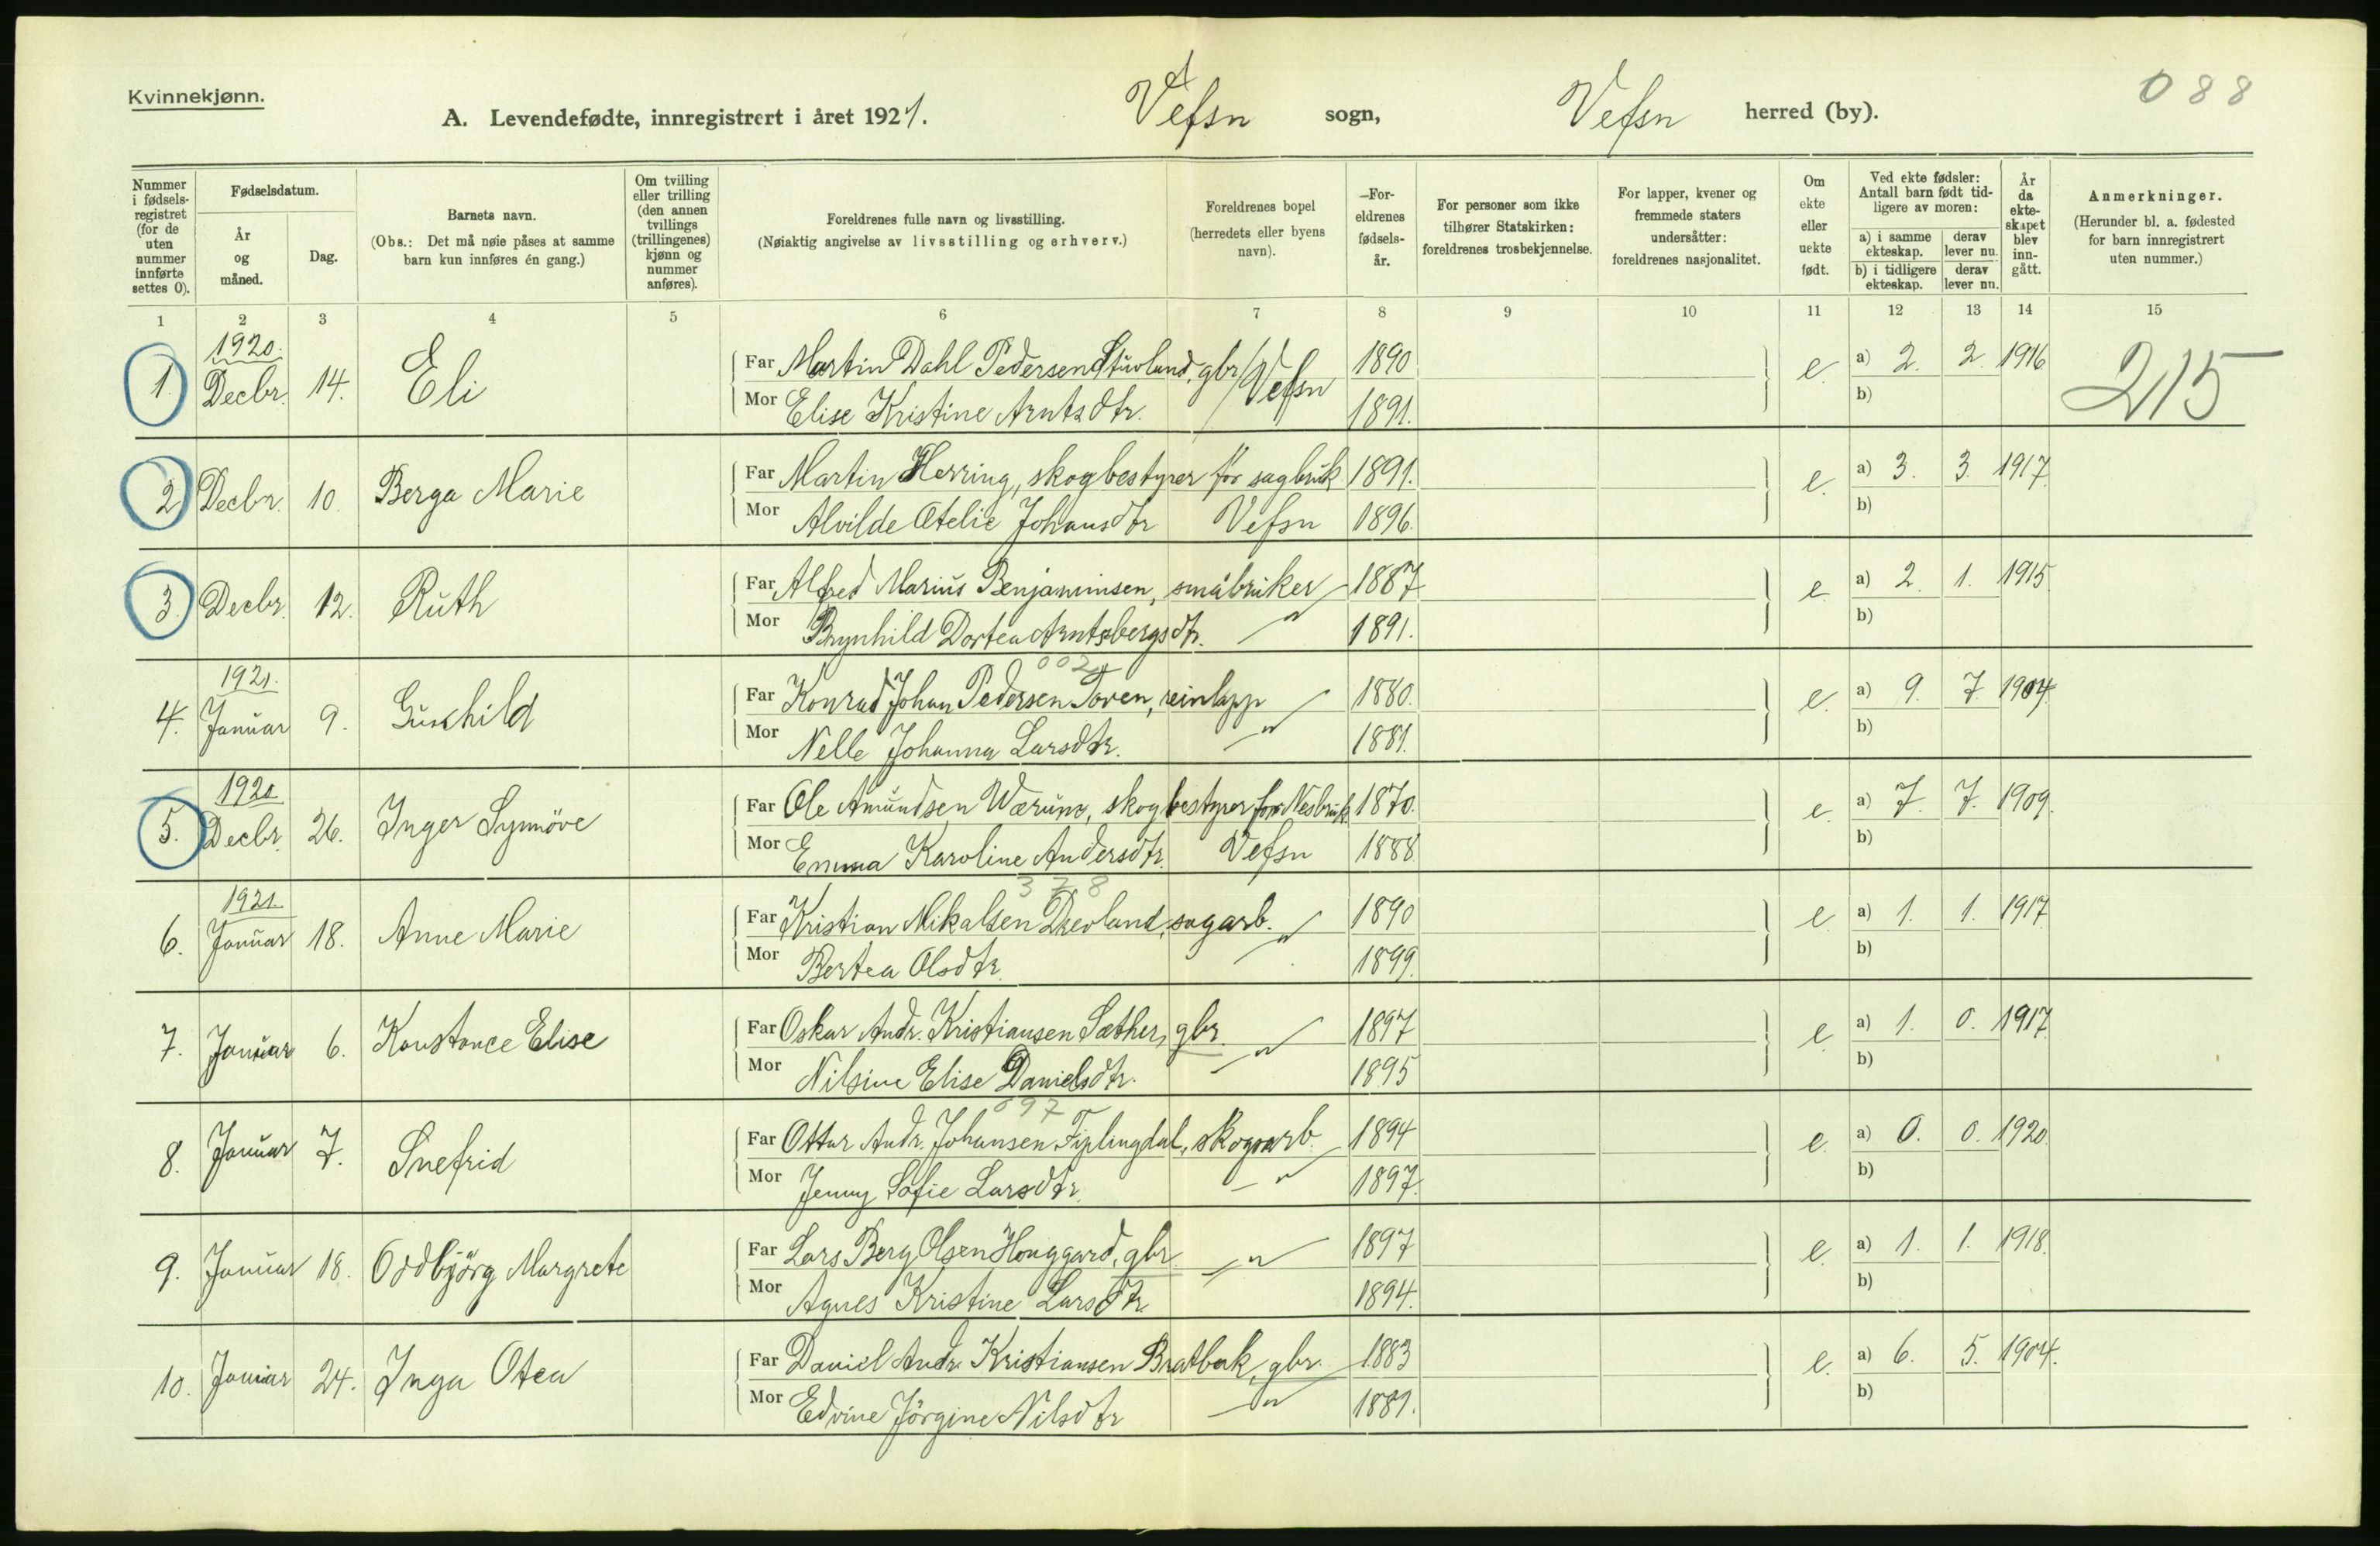 Kvinnekjønn.
088
A. Levendefødte, innregistrert i året 1921. Vefsn sogn, Vefsn herred (by).
Nummer i fødsels-registret (for de uten nummer innførte settes 0).
Fødselsdatum.
År og måned.
Dag.
Barnets navn.
(Obs.: Det må nøie påses at samme barn kun innføres én gang.)
Om tvilling eller trilling (den annen tvillings (trillingenes) kjønn og nummer anføres).
Foreldrenes fulle navn og livsstilling.
(Nøiaktig angivelse av livsstilling og erhverv.)
Foreldrenes bopel (herredets eller byens navn).
For-eldrenes fødsels-år.
For personer som ikke tilhører Statskirken: foreldrenes trosbekjennelse.
For lapper, kvener og fremmede staters undersåtter: foreldrenes nasjonalitet.
Om ekte eller uekte født.
Ved ekte fødsler: Antall barn født tid-ligere av moren:
a) i samme ekteskap. derav lever nu.
b) i tidligere ekteskap. derav lever nu.
År da ekte-skapet blev inn-gått.
Anmerkninger.
(Herunder bl. a. fødested for barn innregistrert uten nummer.)
1 2 3 4 5 6 7 8 9 10 11 12 13 14 15
1920.
1. Decbr. 14. Eli Far Martin Dahl Pedersen Stuvland, gbr. Vefsn 1890 e. a) 2. 2. 1916 215
Mor Elise Kristine Arntsdtr. 1891. b)
2 Decbr. 10. Berga Marie Far Martin Herring, skogbestyrer for sagbruk 1891. e. a) 3. 3. 1917
Mor Alvilde Otelie Johansdtr Vefsn 1896. b)
3. Decbr. 12. Ruth Far Alfred Marius Benjaminsen, småbruker 1887 e. a) 2. 1. 1915.
Mor Brynhild Dortea Arntsbergsdtr. -"- 1891. b)
1921. 002
4. Januar 9. Gunhild Far Konrad Johan Pedersen Toven, reinlapp 1880. e. a) 9. 7. 1904.
Mor Nelle Johanna Larsdtr. -"- 1881. b)
1920
5. Decbr. 26. Inger Synnöve Far Ole Amundsen Wærum, skogbestyrer for Nesbruk 1870. e. a) 7. 7. 1909.
Mor Emma Karoline Andersdtr. Vefsn 1888. b)
1921. 378
6. Januar 18. Anne Marie Far Kristian Mikalsen Drevland, sagarb. 1890 e. a) 1. 1. 1917
Mor Bertea Olsdtr. -"- 1899. b)
7. Januar 6. Konstance Elise Far Oskar Andr. Kristiansen Sæther, gbr. 1897 e. a) 1. 0. 1917
Mor Nilsine Elise Danielsdtr. -"- 1895 b)
097
8. Januar 7. Snefrid Far Ottar Andr. Johansen Fiplingdal, skogarb. 1894 e. a) 0. 0. 1920.
Mor Jenny Sofie Larsdtr. -"- 1897. b)
9. Januar 18. Oddbjörg Margrete Far Lars Berg Olsen Honggard, gbr. 1897 e. a) 1. 1. 1918.
Mor Agnes Kristine Larsdtr -"- 1894. b)
10. Januar 24. Inga Otea Far Daniel Andr. Kristiansen Bratbak, gbr. 1883 e. a) 6. 5. 1904.
Mor Edvine Jörgine Nilsdtr -"- 1881. b)